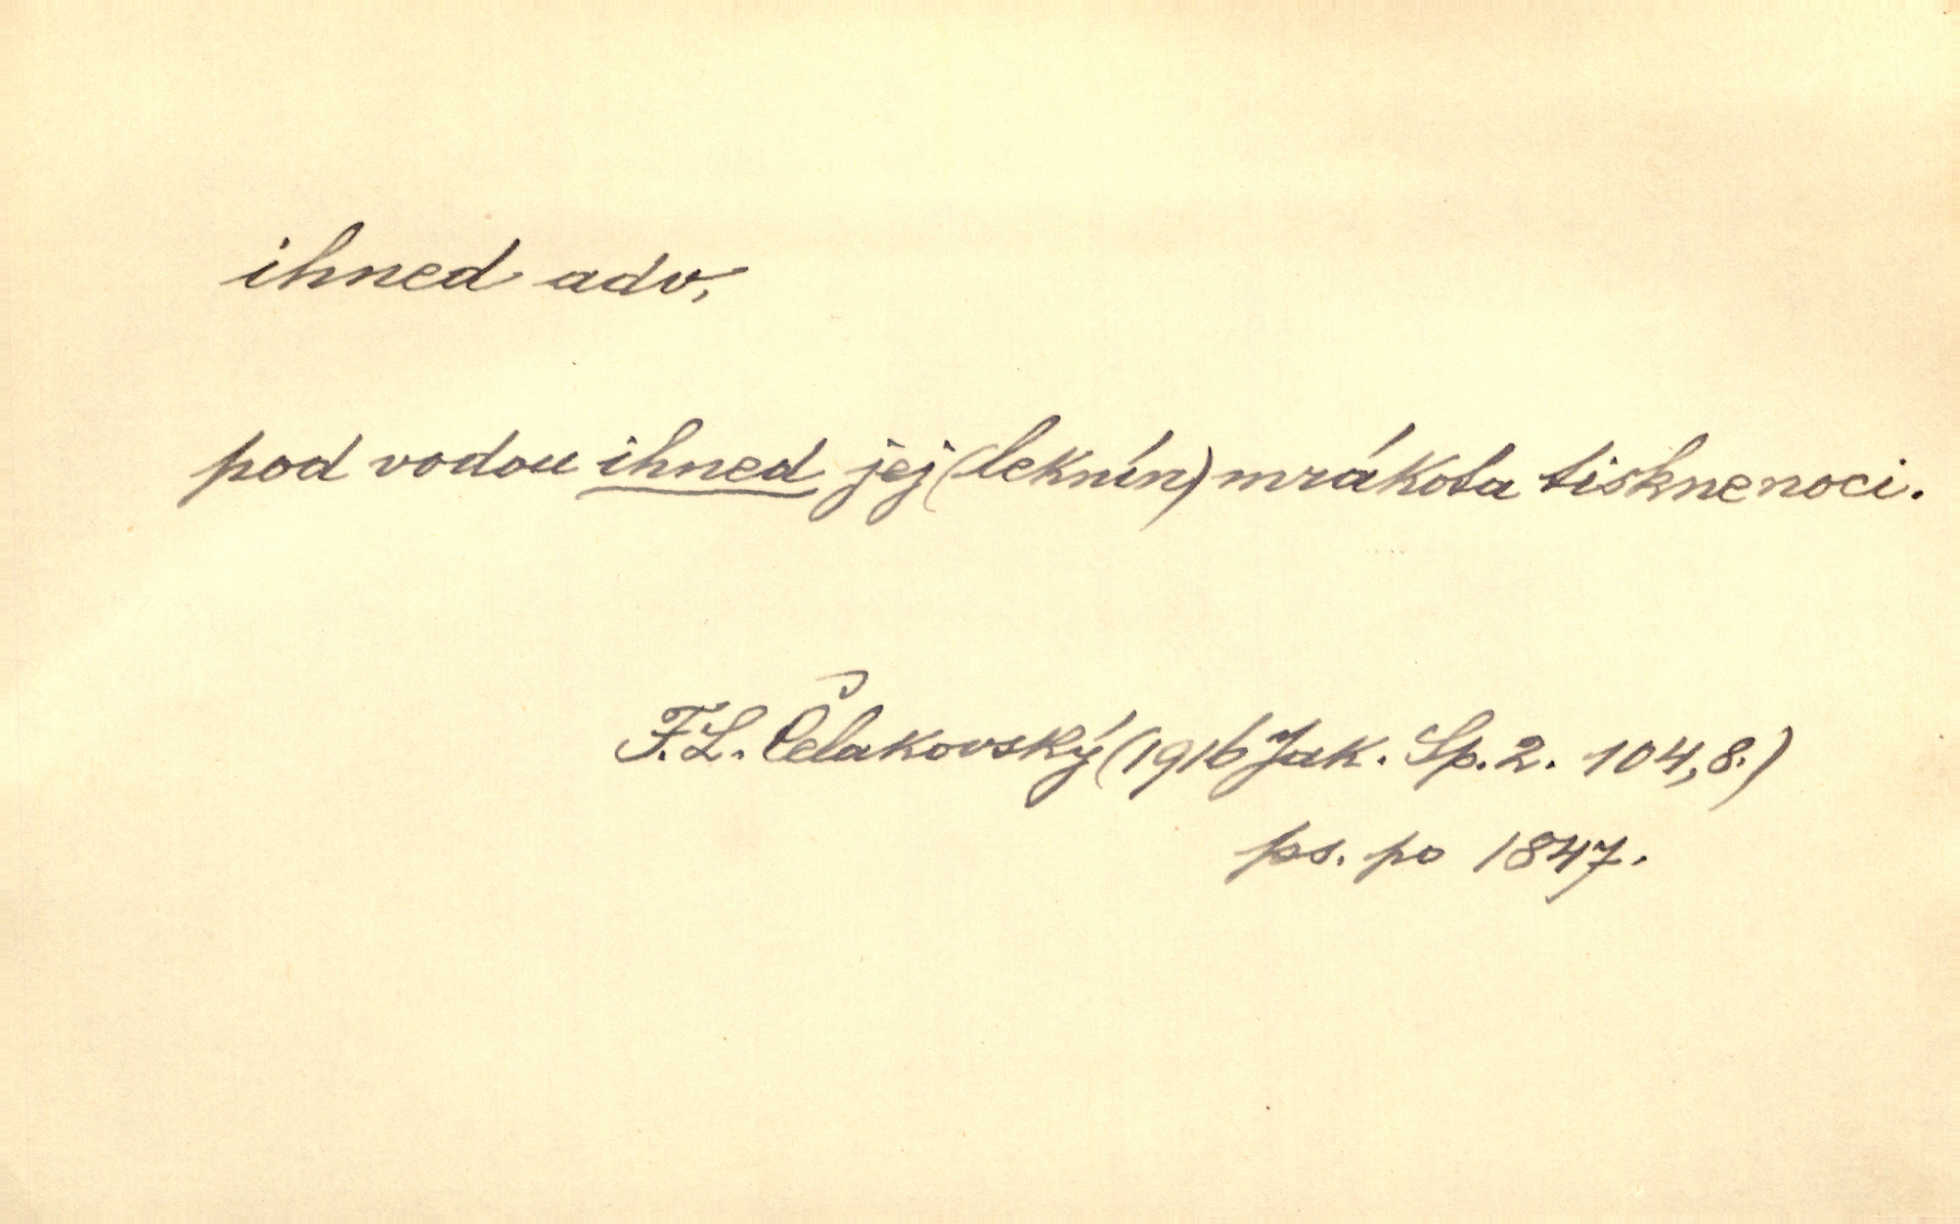 ihned adv,
pod vodou ihned jej (leknín) mrákota tiskne noci.
F. L. Čelakovský (1916 Jak. Sp. 2. 104, 8.)
ps. po 1847.